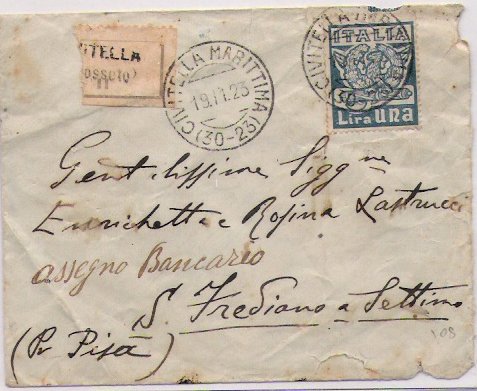 ITELLA
(Grosseto)
CIVITELLA MARITTIMA
19.11.23
(30-23)
CIVITELLA MAR
(30-23)
ITALIA
Lira UNA
Gentilissime Sigg ne
Enrichetta e Rosina Lastrucci
assegno Bancario
S. Frediano a Settimo
(Pr Pisa)
108